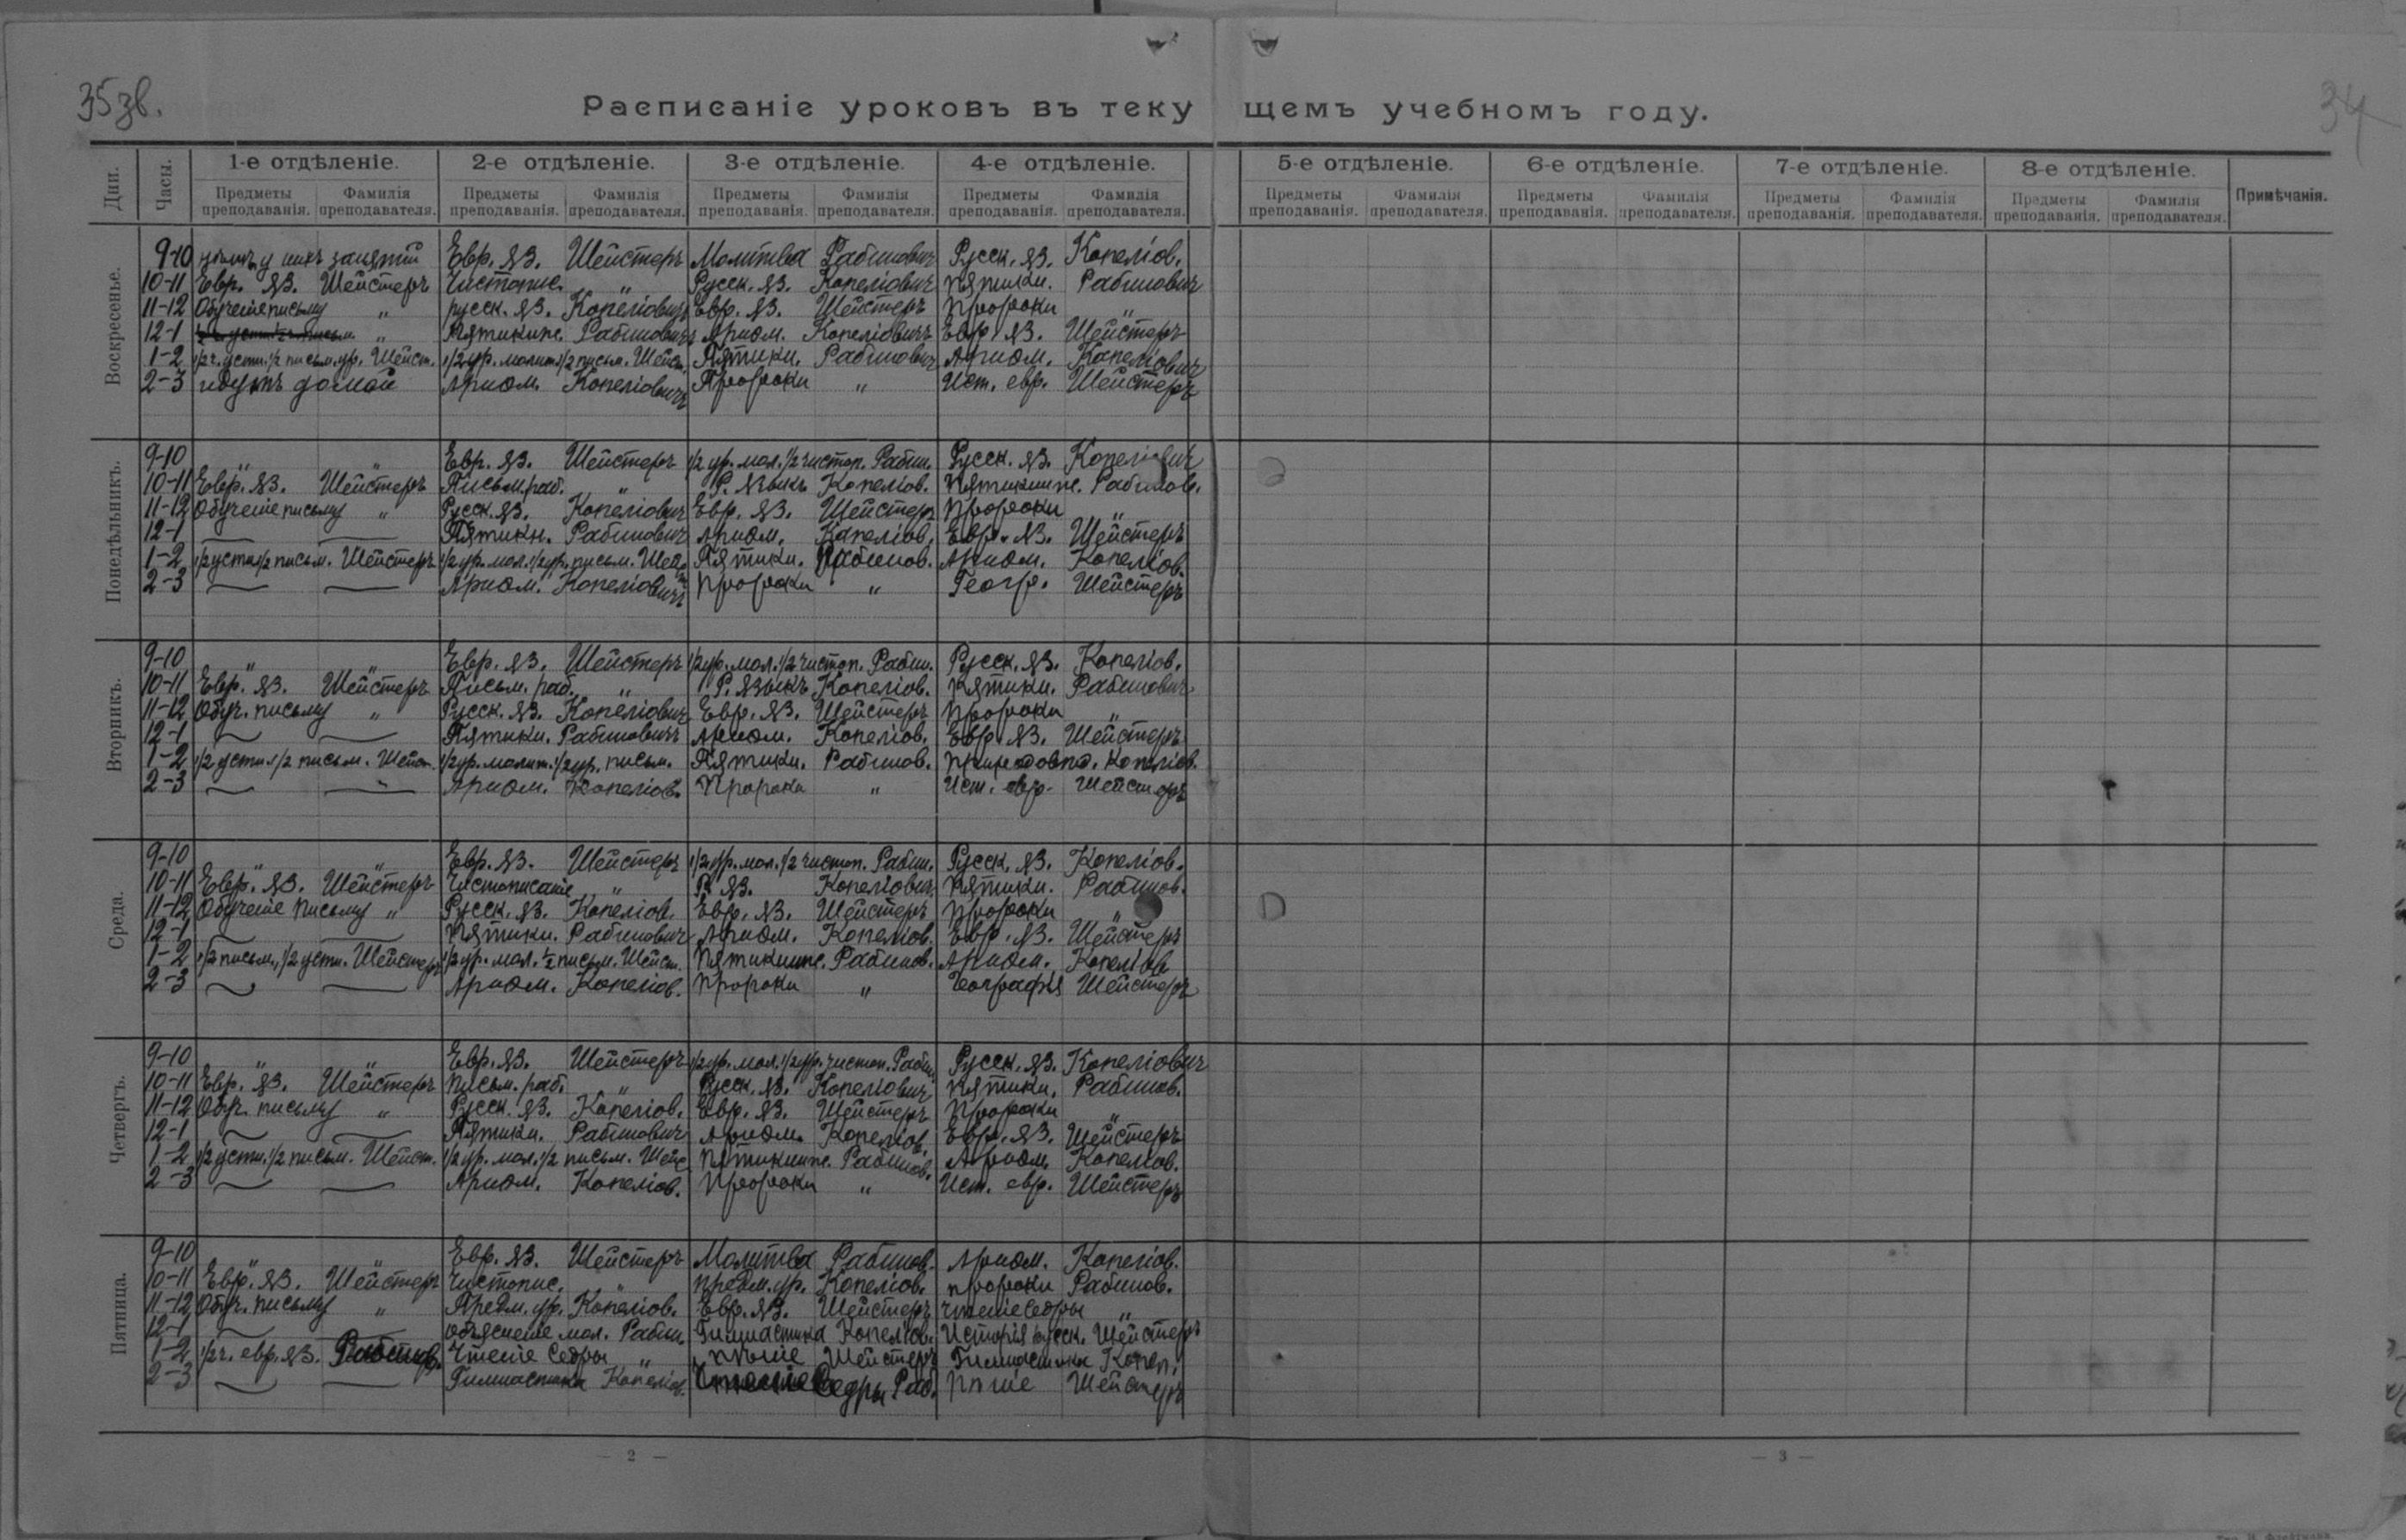 35 зв.
34
Расписаніе уроковъ въ текущемъ учебномъ году.
Дни. Часы. 1-е отдѣленіе. 2-е отдѣленіе. 3-е отдѣленіе. 4-е отдѣленіе. 5-е отдѣленіе. 6-е отдѣленіе. 7-е отдѣленіе. 8-е отдѣленіе. Примѣчанія.
Предметы преподаванія. Фамилія преподавателя. Предметы преподаванія. Фамилія преподавателя. Предметы преподаванія. Фамилія преподавателя. Предметы преподаванія. Фамилія преподавателя. Предметы преподаванія. Фамилія преподавателя. Предметы преподаванія. Фамилія преподавателя. Предметы преподаванія. Фамилія преподавателя. Предметы преподаванія. Фамилія преподавателя.
Воскресенье.
9-10 нѣтъ у нихъ занятій Евр. яз. Шейстеръ Молитва Рабинович Русск. яз. Копеліов.
10-11 Евр. яз. Шейстеръ Чистопис. " Русск. яз. Копеліович Пятикн. Рабинович
11-12 Обученіе письму " русск. яз. Копеліович Евр. яз. Шейстеръ Пророки "
12-1 " Пятикниж. Рабинович Ариѳм. Копеліовичъ Евр. яз. Шейстеръ
1-2 1/2 ч. устн. 1/2 письм. ур. Шейст. 1/2 ур. молит. 1/2 письм. Шейст. Пятикн. Рабинович Ариѳм. Копеліович
2-3 идутъ домой Ариѳм. Копеліовичъ Пророки " Ист. евр. Шейстеръ
Понедѣльникъ.
9-10 " " Евр. яз. Шейстеръ 1/2 ур. мол. 1/2 чистоп. Рабин. Русск. яз. Копеліович
10-11 Евр. яз. Шейстеръ Письм. раб. " Р. языкъ Копеліов. Пятикниж. Рабинов.
11-12 Обученіе письму " Русск. яз. Копеліович Евр. яз. Шейстеръ Пророки "
12-1 — — Пятикн. Рабинович Ариѳм. Копеліов. Евр. яз. Шейстеръ
1-2 1/2 устн. 1/2 письм. Шейстеръ 1/2 ур. мол. 1/2 ур. письм. Шейс. Пятикн. Рабинов. Ариѳм. Копеліов.
2-3 — — Ариѳм. Копеліовичъ Пророки " Геогр. Шейстеръ
Вторникъ.
9-10 " " Евр. яз. Шейстеръ 1/2 ур. мол. 1/2 чистоп. Рабин. Русск. яз. Копеліов.
10-11 Евр. яз. Шейстеръ Письм. раб. " Р. языкъ Копеліов. Пятикн. Рабинович
11-12 Обуч. письму " Русск. яз. Копеліович Евр. яз. Шейстеръ Пророки "
12-1 — — Пятикн. Рабинович Ариѳм. Копеліов. Евр. яз. Шейстеръ
1-2 1/2 устн. 1/2 письм. Шейст. 1/2 ур. молит. 1/2 ур. письм. Пятикн. Рабинов. Копеліов.
2-3 — — Ариѳм. Копеліов. Пророки " Ист. евр. Шейстеръ
Среда.
9-10 " " Евр. яз. Шейстеръ 1/2 ур. мол. 1/2 чистоп. Рабин. Русск. яз. Копеліов.
10-11 Евр. яз. Шейстеръ Чистописаніе " Р. яз. Копеліович Пятикн. Рабинов.
11-12 Обученіе письму " Русск. яз. Копеліов. Евр. яз. Шейстеръ Пророки "
12-1 — — Пятикн. Рабинович Ариѳм. Копеліов. Евр. яз. Шейстеръ
1-2 1/2 письм., 1/2 устн. Шейстеръ 1/2 ур. мол. 1/2 письм. Шейст. Пятикниж. Рабинов. Ариѳм. Копеліов
2-3 — — Ариѳм. Копеліов. Пророки " Географія Шейстеръ
Четвергъ.
9-10 " " Евр. яз. Шейстеръ 1/2 ур. мол. 1/2 ур. чистоп. Рабин. Русск. яз. Копеліович
10-11 Евр. яз. Шейстеръ Письм. раб. " Русск. яз. Копеліович Пятикн. Рабинов.
11-12 Обуч. письму " Русск. яз. Копеліов. Евр. яз. Шейстеръ Пророки "
12-1 — — Пятикн. Рабинович Ариѳм. Копеліов. Евр. яз. Шейстеръ
1-2 1/2 устн. 1/2 письм. Шейст. 1/2 ур. мол. 1/2 письм. Шейс. Пятикниж. Рабинов. Ариѳм. Копеліов.
2-3 — — Ариѳм. Копеліов. Пророки " Ист. евр. Шейстеръ
Пятница.
9-10 " " Евр. яз. Шейстеръ Молитва Рабинов. Ариѳм. Копеліов.
10-11 Евр. яз. Шейстеръ Чистопис. " Предм. ур. Копеліов. Пророки Рабинов.
11-12 Обуч. письму " Предм. ур. Копеліов. Евр. яз. Шейстеръ Чтеніе Седры "
12-1 — — Объясненіе мол. Рабин. Гимнастика Копеліов. Исторія русск. Шейстеръ
1-2 1/2 ч. евр. яз. Рабинов. Чтеніе Седры " пѣніе Шейстеръ Гимнастика Копел.
2-3 — — Гимнастика Копеліов. Чтеніе Седры Раб. Пѣніе Шейстеръ
— 2 —
— 3 —